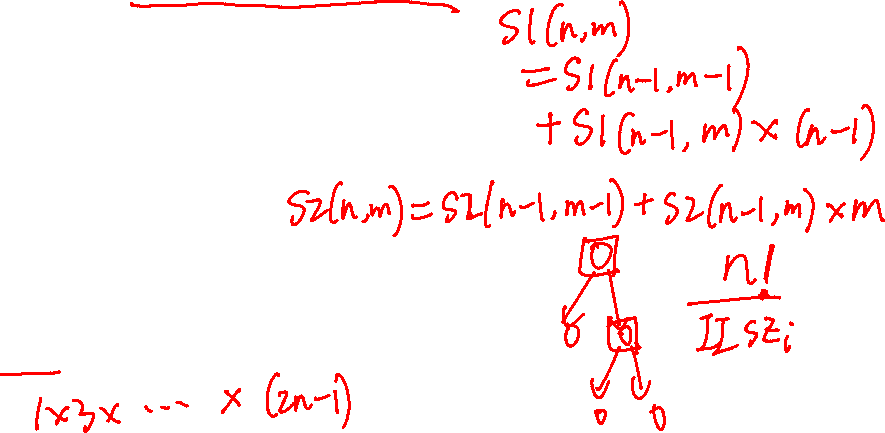 S1(n,m)
=S1(n-1,m-1)
+S1(n-1,m)×(n-1)
S2(n,m)=S2(n-1,m-1)+S2(n-1,m)×m
n!
∏ szᵢ
1×3× ... ×(2n-1)